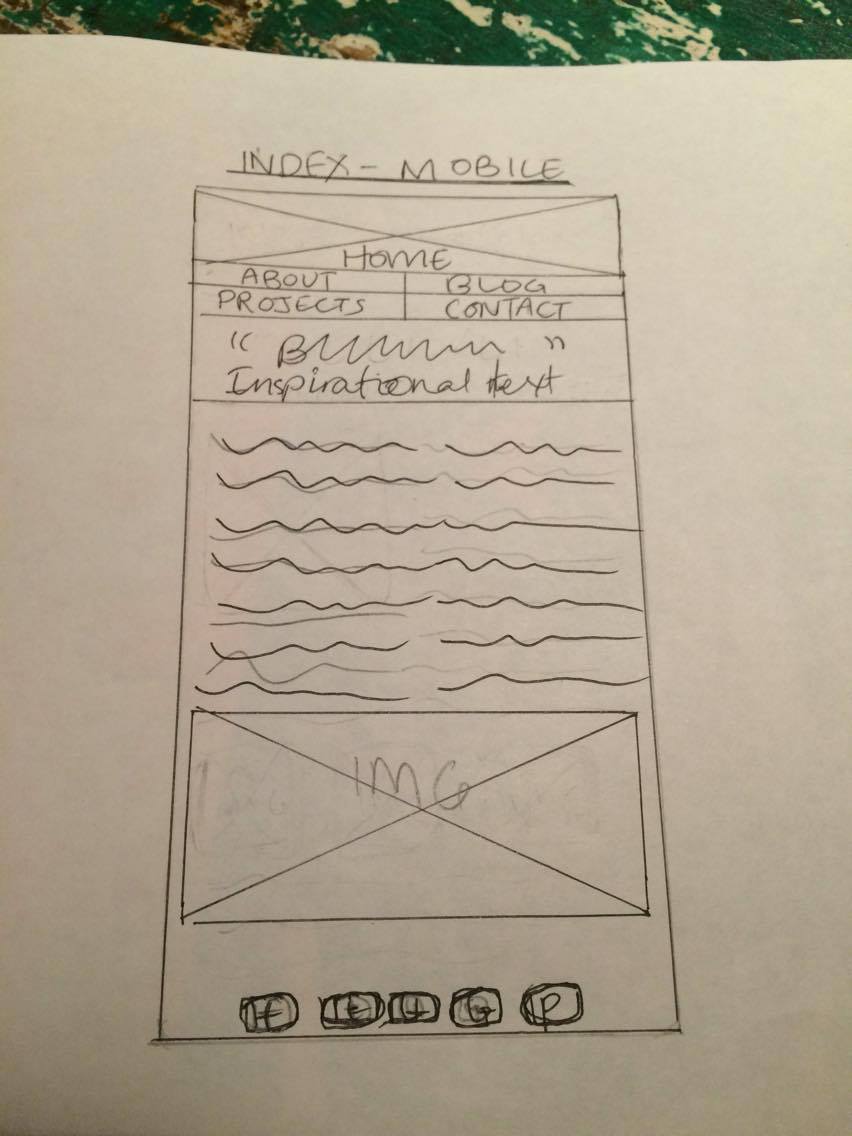 INDEX - MOBILE
HOME
ABOUT BLOG
PROJECTS CONTACT
Inspirational text
IMG
G P